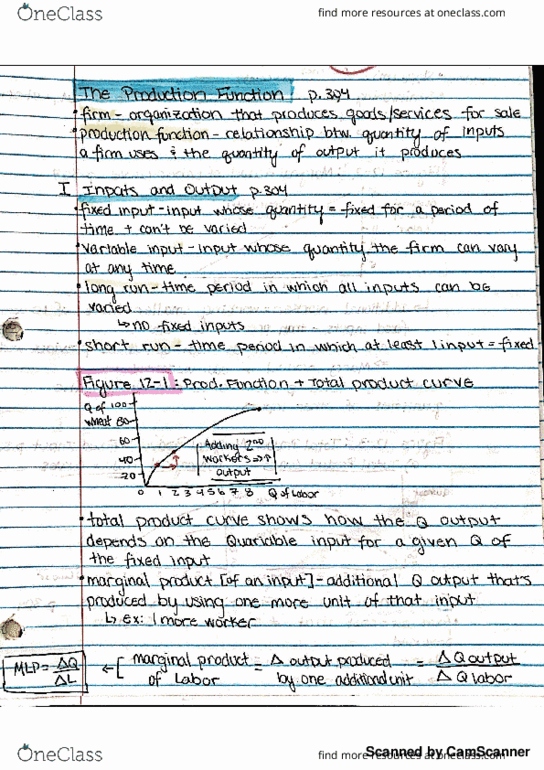 OneClass find more resources at oneclass.com
The Production Function p.394
• firm - organization that produces goods/services for sale
• production function - relationship btw. quantity of inputs
a firm uses & the quantity of output it produces
I Inputs and Output p.304
• fixed input - input whose quantity = fixed for a period of
time + can't be varied
• variable input - input whose quantity the firm can vary
at any time
• long run - time period in which all inputs can be
varied
↳ no fixed inputs
• short run - time period in which at least 1 input = fixed
Figure 12-1: Prod. Function + Total product curve
Q of 100
wheat 80
60
40
20
Adding 2nd
workers => ↑
output
0 1 2 3 4 5 6 7 8 Q of Labor
• total product curve shows how the Q output
depends on the Quariable input for a given Q of
the fixed input
• marginal product [of an input] - additional Q output that's
produced by using one more unit of that input
↳ ex: 1 more worker
MLP = ΔQ/ΔL ← [ marginal product of Labor = Δ output produced by one additional unit = ΔQ output/ΔQ labor
Scanned by CamScanner
OneClass find more resources at oneclass.com